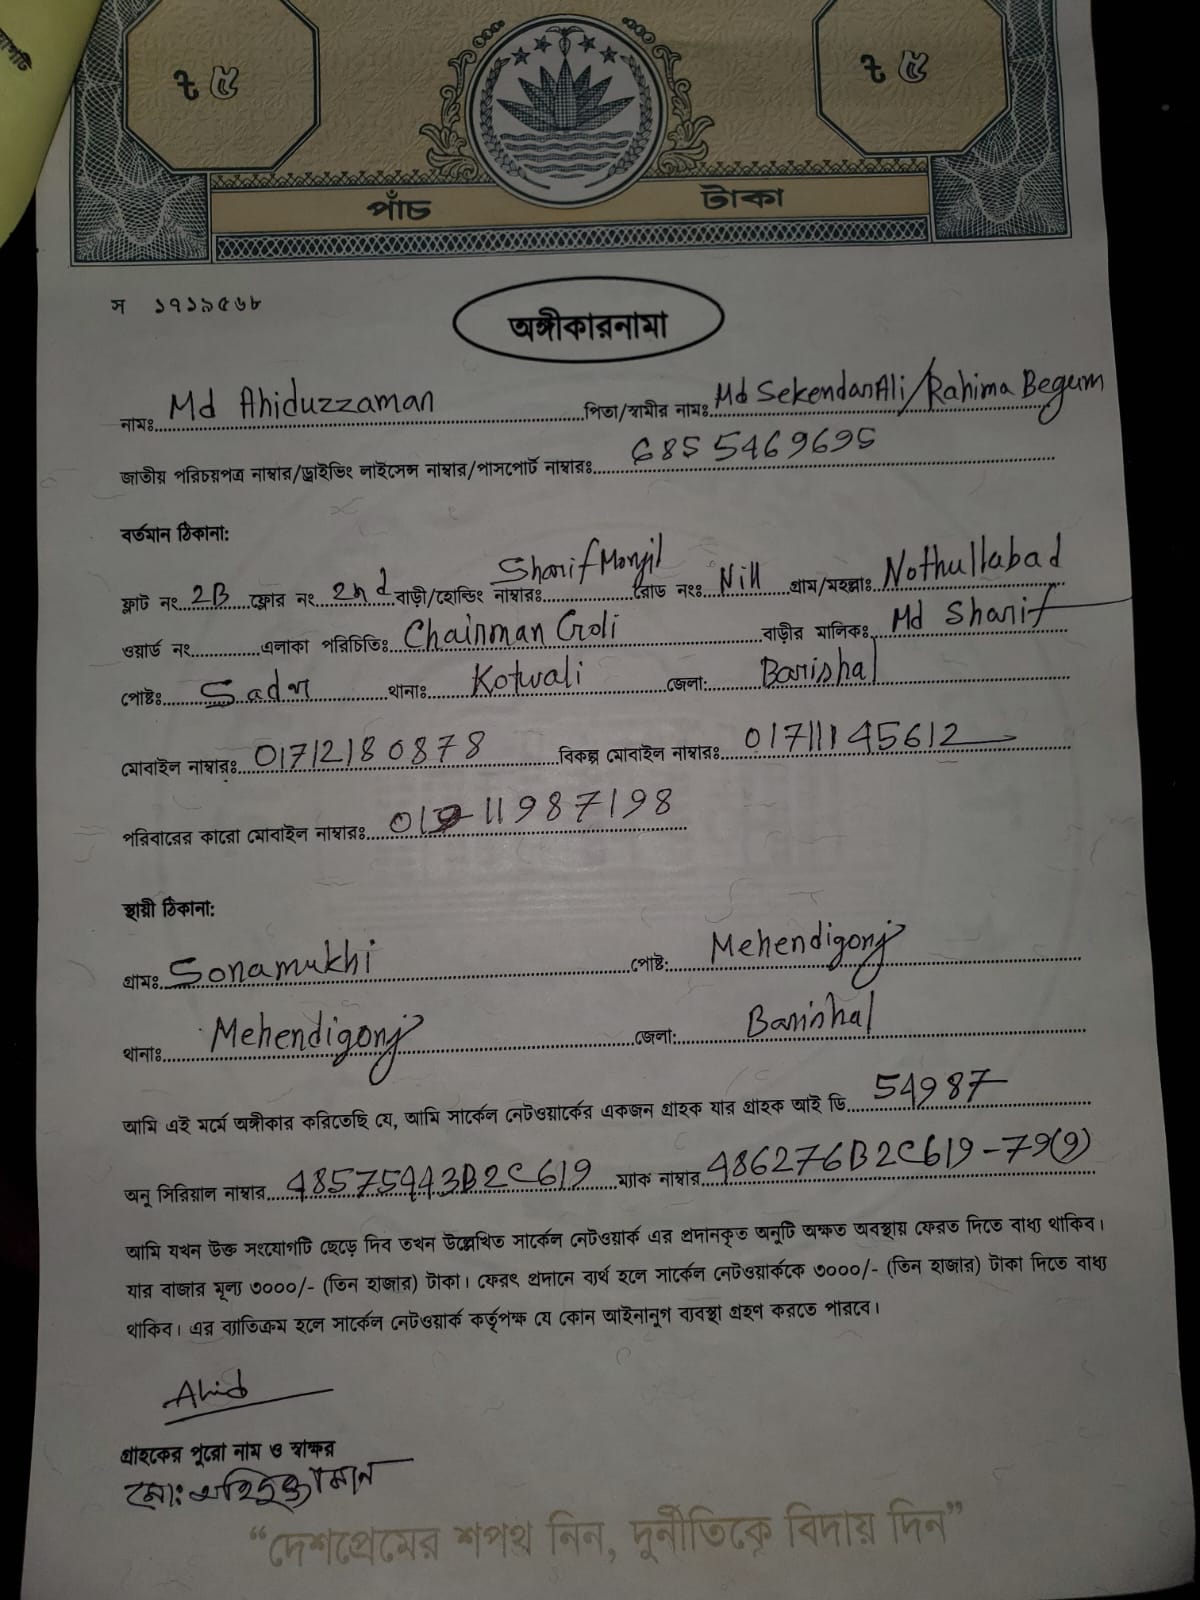 ৳ ৫
৳ ৫
পাঁচ টাকা
স ১৭১৯৫৬৮
অঙ্গীকারনামা
নামঃ Md Ahiduzzaman পিতা/স্বামীর নামঃ Md Sekendar Ali/Rahima Begum
জাতীয় পরিচয়পত্র নাম্বার/ড্রাইভিং লাইসেন্স নাম্বার/পাসপোর্ট নাম্বারঃ 6855469695
বর্তমান ঠিকানা:
ফ্লাট নং 2B ফ্লোর নং 2nd বাড়ী/হোল্ডিং নাম্বারঃ Sharif Monjil রোড নংঃ Nill গ্রাম/মহল্লাঃ Nothullabad
ওয়ার্ড নং এলাকা পরিচিতিঃ Chairman Goli বাড়ীর মালিকঃ Md Sharif
পোষ্টঃ Sadar থানাঃ Kotwali জেলা: Barishal
মোবাইল নাম্বারঃ 01712180878 বিকল্প মোবাইল নাম্বারঃ 01711145612
পরিবারের কারো মোবাইল নাম্বারঃ
স্থায়ী ঠিকানা:
গ্রামঃ Sonamukhi পোষ্ট: Mehendigonj
থানাঃ Mehendigonj জেলা: Barishal
আমি এই মর্মে অঙ্গীকার করিতেছি যে, আমি সার্কেল নেটওয়ার্কের একজন গ্রাহক যার গ্রাহক আই ডি 54987
অনু সিরিয়াল নাম্বার 48575443B2C619 ম্যাক নাম্বার 486276B2C619-79(9)
আমি যখন উক্ত সংযোগটি ছেড়ে দিব তখন উল্লেখিত সার্কেল নেটওয়ার্ক এর প্রদানকৃত অনুটি অক্ষত অবস্থায় ফেরত দিতে বাধ্য থাকিব।
যার বাজার মূল্য ৩০০০/- (তিন হাজার) টাকা। ফেরৎ প্রদানে ব্যর্থ হলে সার্কেল নেটওয়ার্ককে ৩০০০/- (তিন হাজার) টাকা দিতে বাধ্য
থাকিব। এর ব্যাতিক্রম হলে সার্কেল নেটওয়ার্ক কর্তৃপক্ষ যে কোন আইনানুগ ব্যবস্থা গ্রহণ করতে পারবে।
Ahid
গ্রাহকের পুরো নাম ও স্বাক্ষর
মো: অহিদুজ্জামান
“দেশপ্রেমের শপথ নিন, দুর্নীতিকে বিদায় দিন”